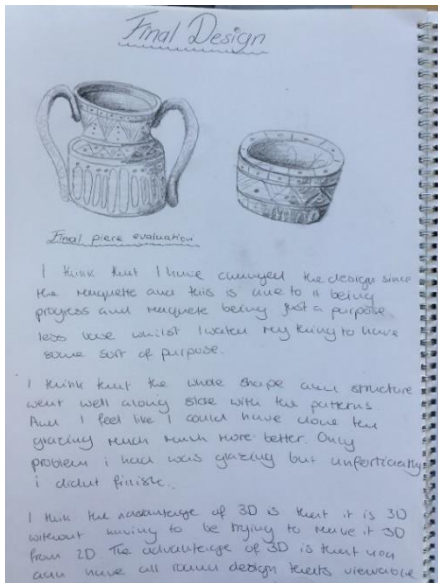 Final Design
Final piece evaluation
I think that I have changed the design since
the maquette and this is due to it being
progress and maquette being just a purpose
less vase whilst I wanted my thing to have
some sort of purpose.
I think that the whole shape and structure
went well along side with the patterns
And I feel like I could have done the
glazing much much more better. Only
problem i had was glazing but unfortionatly
i didnt finish.
I thin the advantage of 3D is that it is 3D
without having to be trying to make it 3D
from 2D. The advantage of 3D is that you
can have all round design thats viewable